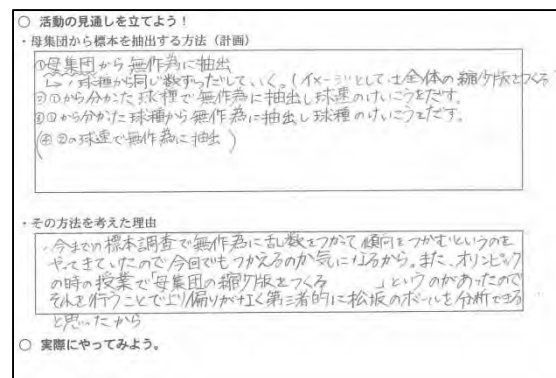 ○ 活動の見通しを立てよう！
・母集団から標本を抽出する方法（計画）
①母集団から無作為に抽出
↳・球種から同じ数ずつだしていく。(イメージとしては全体の縮少版をつくる
②①から分かった球種で無作為に抽出し球速のけいこうをだす。
③①から分かった球種から無作為に抽出し球種のけいこうをだす。
(④②の球速で無作為に抽出 )
・その方法を考えた理由
・今までの標本調査で無作為に乱数をつかって傾向をつかむというのを
やってきていたので今回でもつかえるのか気になるから。また、オリンピック
の時の授業で「母集団の縮少版をつくる 」というのがあったので
それを行うことでより偏りがなく第三者的に松坂のボールを分析できる
と思ったから
○ 実際にやってみよう。